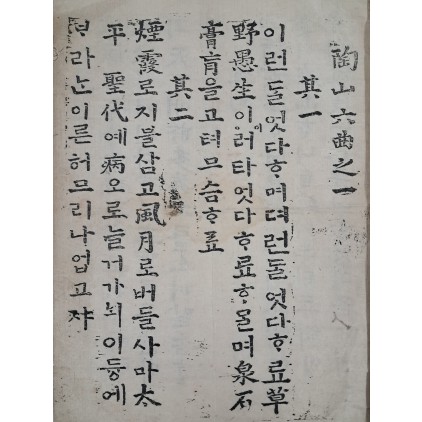 陶山六曲之一
其一
이런ᄃᆞᆯ엇다ᄒᆞ며뎌런ᄃᆞᆯ엇다ᄒᆞ료草
野愚生이이러타엇다ᄒᆞ료ᄒᆞᄆᆞᆯ며泉石
膏肓을고텨므슴ᄒᆞ료
其二
煙霞로지블삼고風月로버들사마太
平 聖代예病오로늘거가뇌이듕에
ᄇᆞ라ᄂᆞᆫ이른허므리나업고쟈